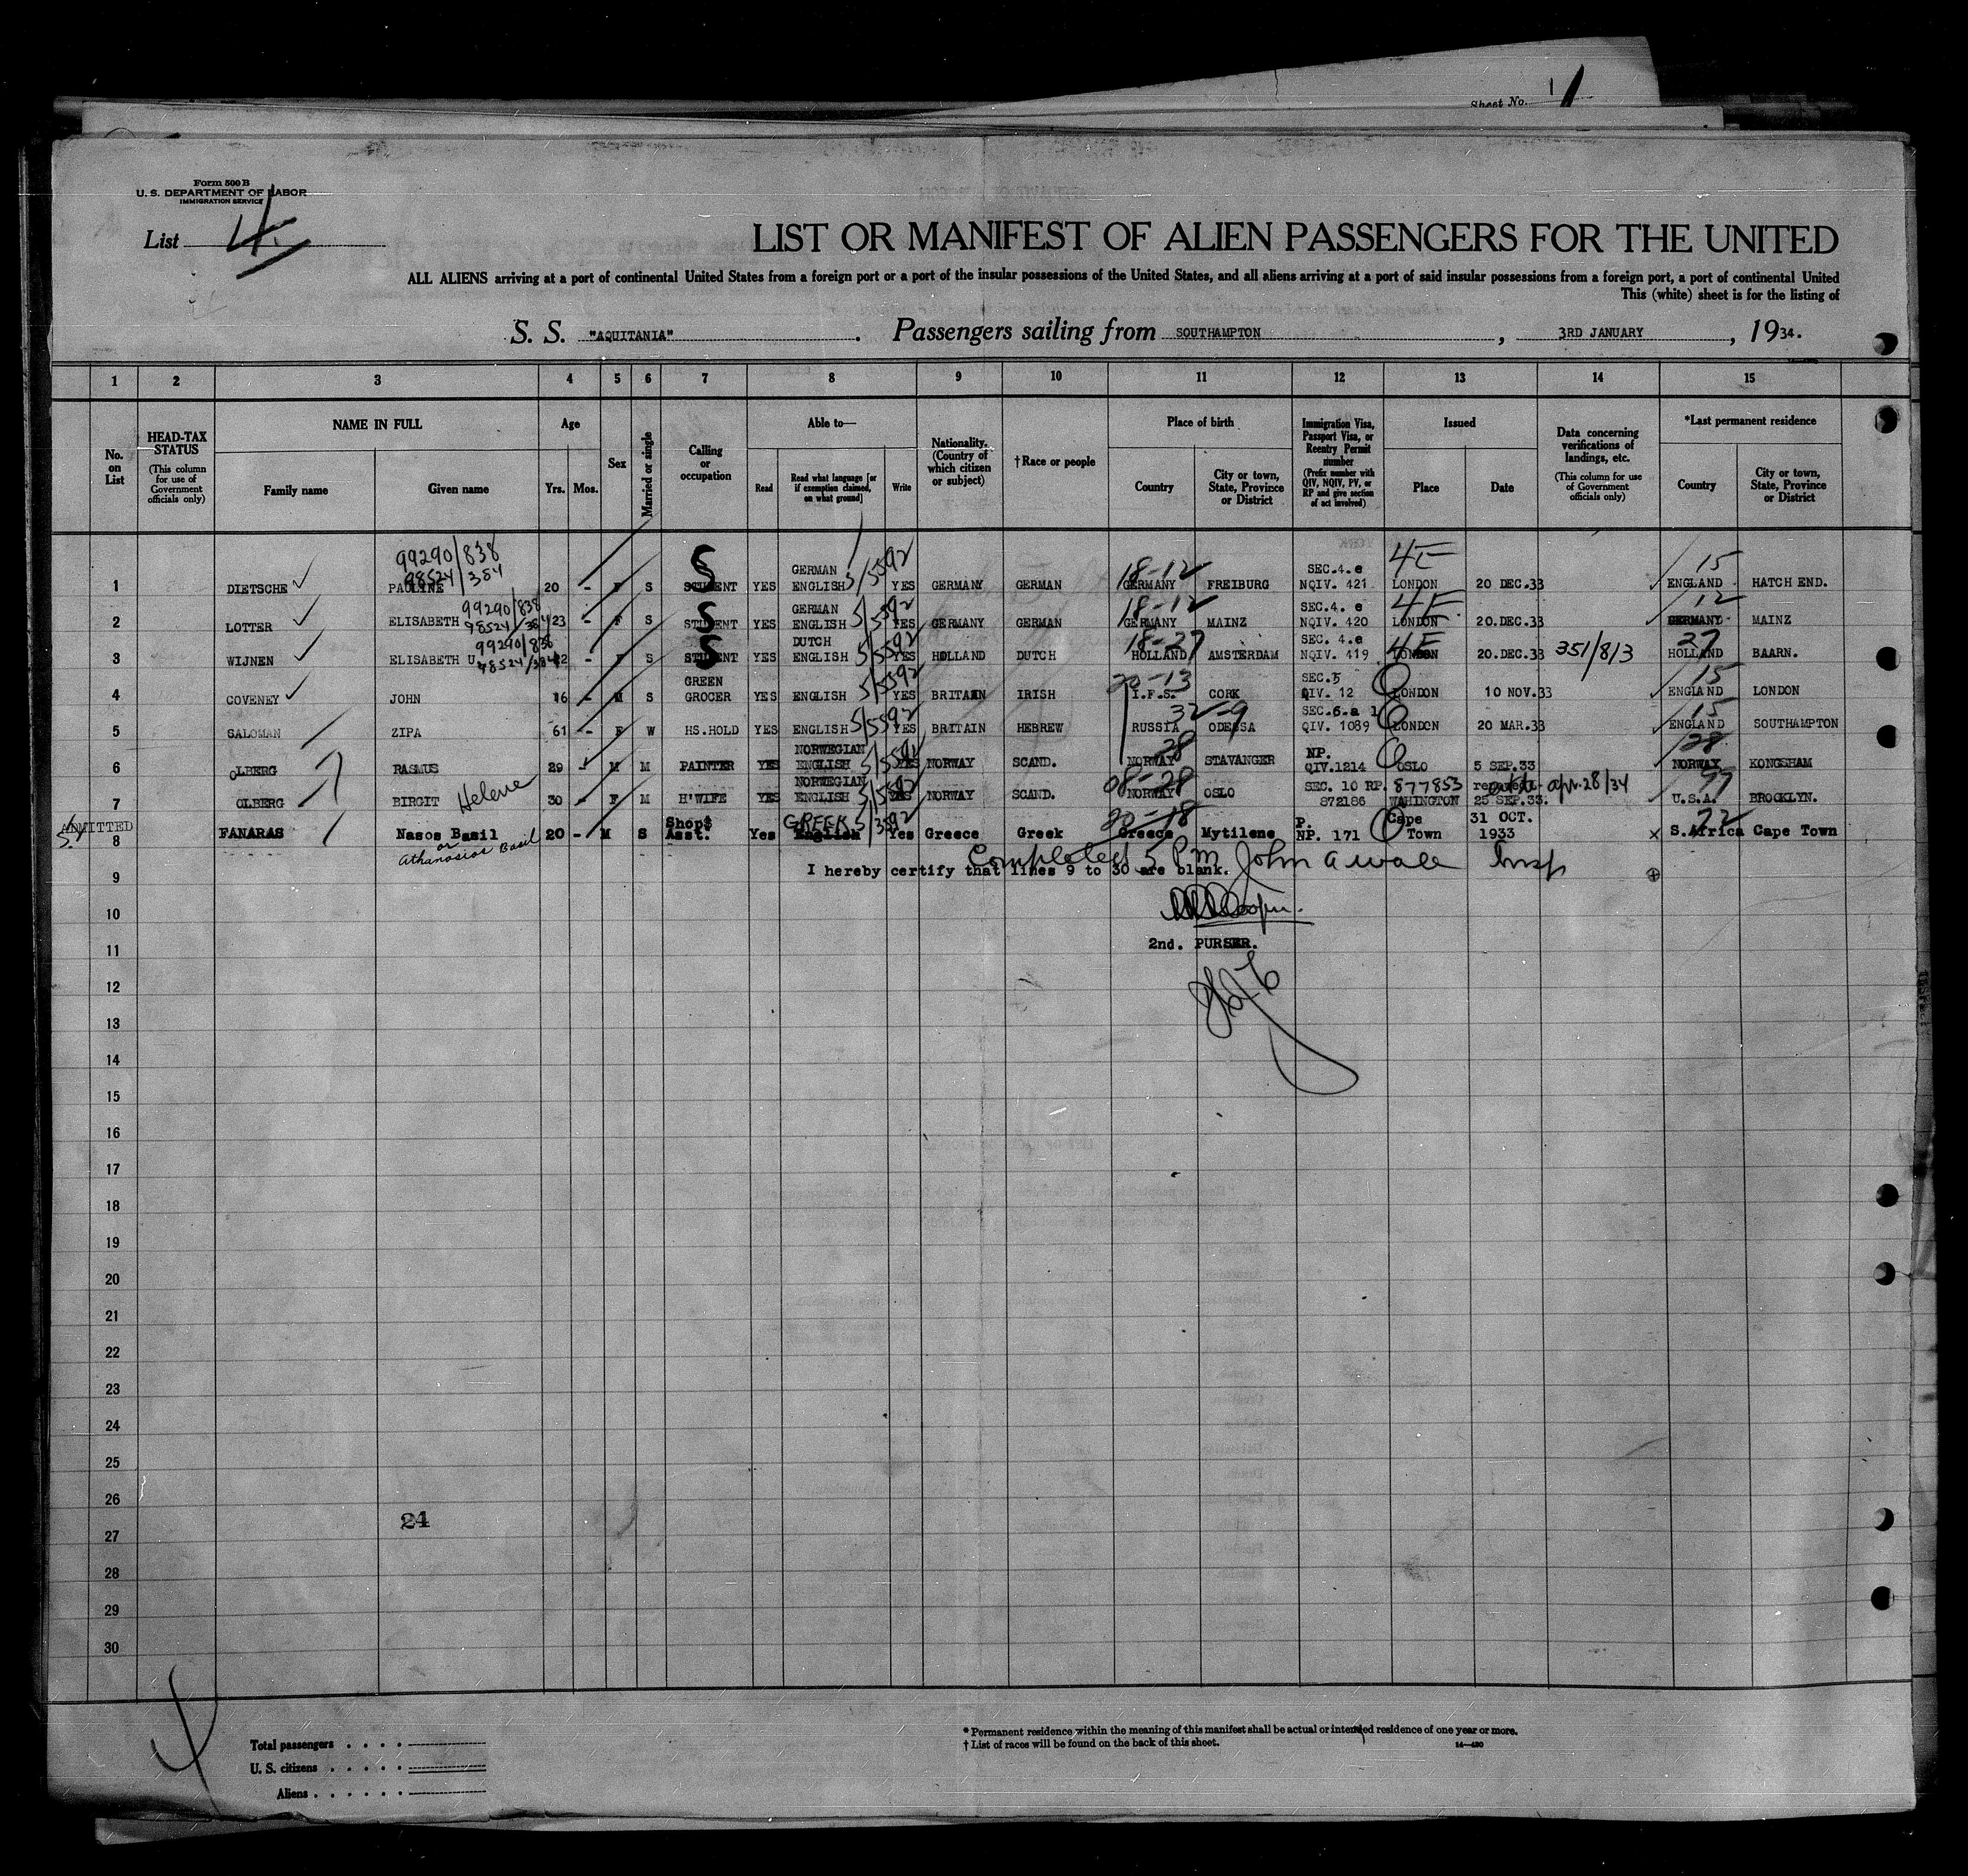 Sheet No. 1
Form 500 B
U. S. DEPARTMENT OF LABOR
IMMIGRATION SERVICE
List 4
LIST OR MANIFEST OF ALIEN PASSENGERS FOR THE UNITED
ALL ALIENS arriving at a port of continental United States from a foreign port or a port of the insular possessions of the United States, and all aliens arriving at a port of said insular possessions from a foreign port, a port of continental United
This (white) sheet is for the listing of
S. S. "AQUITANIA". Passengers sailing from SOUTHAMPTON, 3RD JANUARY, 1934.
1 2 3 4 5 6 7 8 9 10 11 12 13 14 15
No. on List
HEAD-TAX STATUS (This column for use of Government officials only)
NAME IN FULL
Family name Given name
Age
Yrs. Mos.
Sex
Married or single
Calling or occupation
Able to—
Read
Read what language [or if exemption claimed, on what ground]
Write
Nationality. (Country of which citizen or subject)
†Race or people
Place of birth
Country
City or town, State, Province or District
Immigration Visa, Passport Visa, or Reentry Permit number (Prefix number with QIV, NQIV, PV, or RP and give section of act involved)
Issued
Place Date
Data concerning verifications of landings, etc. (This column for use of Government officials only)
*Last permanent residence
Country
City or town, State, Province or District
99290/838
98524/384
GERMAN 18-12 SEC.4.e 4E 15
1 DIETSCHE PAULINE 20 - F S STUDENT YES ENGLISH 5/5592 YES GERMANY GERMAN GERMANY FREIBURG NQIV. 421 LONDON 20 DEC.33 ENGLAND HATCH END.
99290/838
98524/384
GERMAN 18-12 SEC.4. e 4E 12
2 LOTTER ELISABETH 23 - F S STUDENT YES ENGLISH 5/5592 YES GERMANY GERMAN GERMANY MAINZ NQIV. 420 LONDON 20.DEC.33 GERMANY MAINZ
99290/838
98524/384
DUTCH 18-27 SEC. 4.e 4E 27
3 WIJNEN ELISABETH U. 22 - F S STUDENT YES ENGLISH 5/5592 YES HOLLAND DUTCH HOLLAND AMSTERDAM NQIV. 419 LONDON 20.DEC.33 351/8/3 HOLLAND BAARN.
GREEN 20-13 SEC.5 15
4 COVENEY JOHN 16 - M S GROCER YES ENGLISH 5/5592 YES BRITAIN IRISH I.F.S. CORK QIV. 12 LONDON 10 NOV.33 ENGLAND LONDON
32-9 SEC.6.a 1 15
5 SALOMAN ZIPA 61 - F W HS.HOLD YES ENGLISH 5/5592 YES BRITAIN HEBREW RUSSIA ODESSA QIV. 1089 LONDON 20 MAR.33 ENGLAND SOUTHAMPTON
NORWEGIAN 28 NP. 28
6 OLBERG RASMUS 29 - M M PAINTER YES ENGLISH 5/5592 YES NORWAY SCAND. NORWAY STAVANGER QIV.1214 OSLO 5 SEP.33 NORWAY KONGSHAM
NORWEGIAN 08-28 SEC. 10 RP. 877853 apr. 28/34
7 OLBERG BIRGIT Helene 30 - F M H'WIFE YES ENGLISH 5/5592 YES NORWAY SCAND. NORWAY OSLO 872186 WAHINGTON 25 SEP.33. U.S.A. BROOKLYN.
ADMITTED Shop$ GREEK 5/3592 20-18 P. Cape 31 OCT. 72
8 FANARAS Nasos Basil 20 - M S Asst. Yes English Yes Greece Greek Greece Mytilene NP. 171 Town 1933 x S.Africa Cape Town
or
Athanosios Basil
Completed 5 Pm John A Wall Insp
9 I hereby certify that lines 9 to 30 are blank.
10
11 2nd. PURSER.
12
13
14
15
16
17
18
19
20
21
22
23
24
25
26
24
27
28
29
30
Total passengers
U. S. citizens
Aliens
* Permanent residence within the meaning of this manifest shall be actual or intended residence of one year or more.
† List of races will be found on the back of this sheet.
14—430